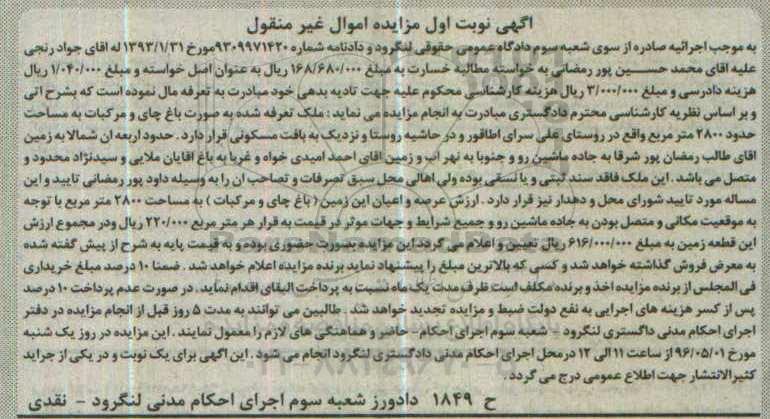 آگهی نوبت اول مزایده اموال غیر منقول
به موجب اجرائیه صادره از سوی شعبه سوم دادگاه عمومی حقوقی لنگرود و دادنامه شماره ۹۳۰۹۹۷۱۴۲۰مورخ ۱۳۹۳/۱/۳۱ له اقای جواد رنجی
علیه اقای محمد حسین پور رمضانی به خواسته مطالبه خسارت به مبلغ ۱۶۸/۶۸۰/۰۰۰ ریال به عنوان اصل خواسته و مبلغ ۱/۰۴۰/۰۰۰ ریال
هزینه دادرسی و مبلغ ۳/۰۰۰/۰۰۰ ریال هزینه کارشناسی محکوم علیه جهت تادیه بدهی خود مبادرت به تعرفه مال نموده است که بشرح اتی
و بر اساس نظریه کارشناسی محترم دادگستری مبادرت به انجام مزایده می نماید : ملک تعرفه شده به صورت باغ چای و مرکبات به مساحت
حدود ۲۸۰۰ متر مربع واقع در روستای علی سرای اطاقور و در حاشیه روستا و نزدیک به بافت مسکونی قرار دارد . حدود اربعه ان شمالا به زمین
اقای طالب رمضان پور شرقا به جاده ماشین رو و جنوبا به نهر اب و زمین اقای احمد امیدی خواه و غربا به باغ اقایان ملایی و سیدنژاد محدود و
متصل می باشد . این ملک فاقد سند ثبتی و یا نسقی بوده ولی اهالی محل سبق تصرفات و تصاحب ان را به وسیله داود پور رمضانی تایید و این
مساله مورد تایید شورای محل و دهدار نیز قرار دارد . ارزش عرصه و اعیان این زمین ( باغ چای و مرکبات ) به مساحت ۲۸۰۰ متر مربع با توجه
به موقعیت مکانی و متصل بودن به جاده ماشین رو و جمیع شرایط و جهات موثر در قیمت به قرار هر متر مربع ۲۲۰/۰۰۰ ریال ودر مجموع ارزش
این قطعه زمین به مبلغ ۶۱۶/۰۰۰/۰۰۰ ریال تعیین و اعلام می گردد این مزایده بصورت حضوری بوده و به قیمت پایه به شرح از پیش گفته شده
به معرض فروش گذاشته خواهد شد و کسی که بالاترین مبلغ را پیشنهاد نماید برنده مزایده اعلام خواهد شد . ضمنا ۱۰ درصد مبلغ خریداری
فی المجلس از برنده مزایده اخذ و برنده مکلف است ظرف مدت یک ماه نسبت به پرداخت البقای اقدام نماید . در صورت عدم پرداخت ۱۰ درصد
پس از کسر هزینه های اجرایی به نفع دولت ضبط و مزایده تجدید خواهد شد . طالبین می توانند به مدت ۵ روز قبل از انجام مزایده در دفتر
اجرای احکام مدنی داگستری لنگرود - شعبه سوم اجرای احکام - حاضر و هماهنگی های لازم را معمول نمایند . این مزایده در روز یک شنبه
مورخ ۹۶/۰۵/۰۱ از ساعت ۱۱ الی ۱۲ درمحل اجرای احکام مدنی دادگستری لنگرود انجام می شود . این اگهی برای یک نوبت و در یکی از جراید
کثیرالانتشار جهت اطلاع عمومی درج می گردد .
ح ۱۸۴۹ دادورز شعبه سوم اجرای احکام مدنی لنگرود - نقدی